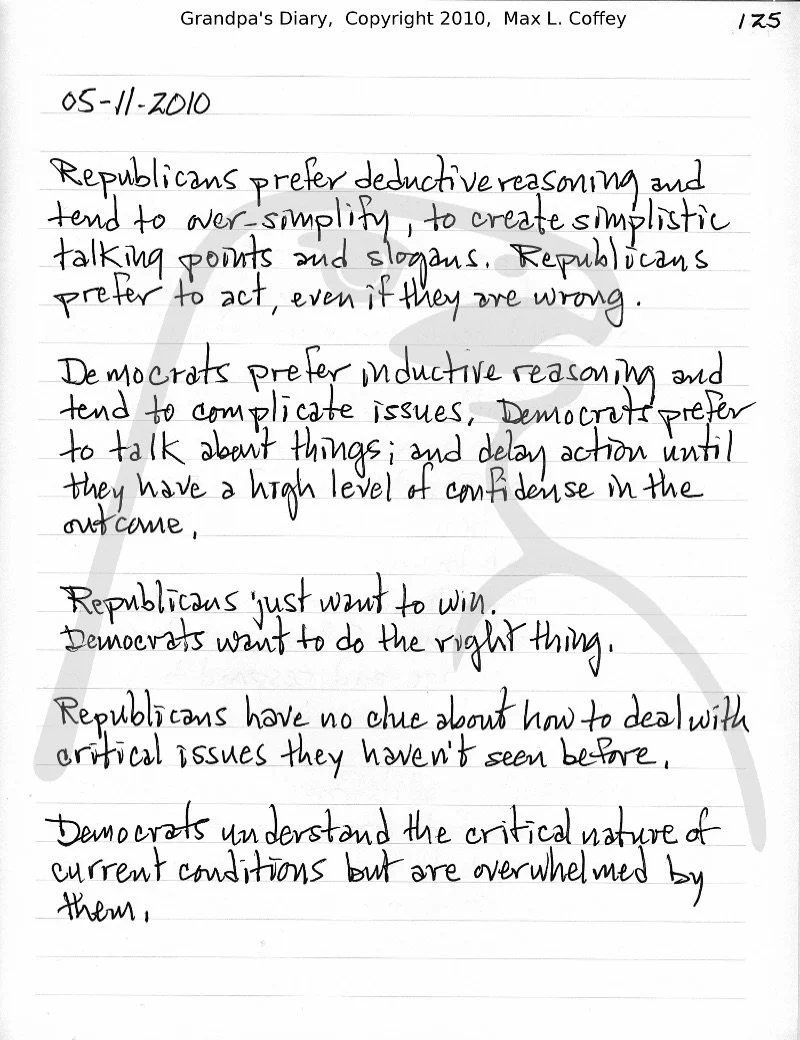 Grandpa's Diary, Copyright 2010, Max L. Coffey
125
05-11-2010
Republicans prefer deductive reasoning and
tend to over-simplify, to create simplistic
talking points and slogans. Republicans
prefer to act, even if they are wrong.
Democrats prefer inductive reasoning and
tend to complicate issues. Democrats prefer
to talk about things; and delay action until
they have a high level of confidense in the
outcome.
Republicans just want to win.
Democrats want to do the right thing.
Republicans have no clue about how to deal with
critical issues they haven't seen before.
Democrats understand the critical nature of
current conditions but are overwhelmed by
them.